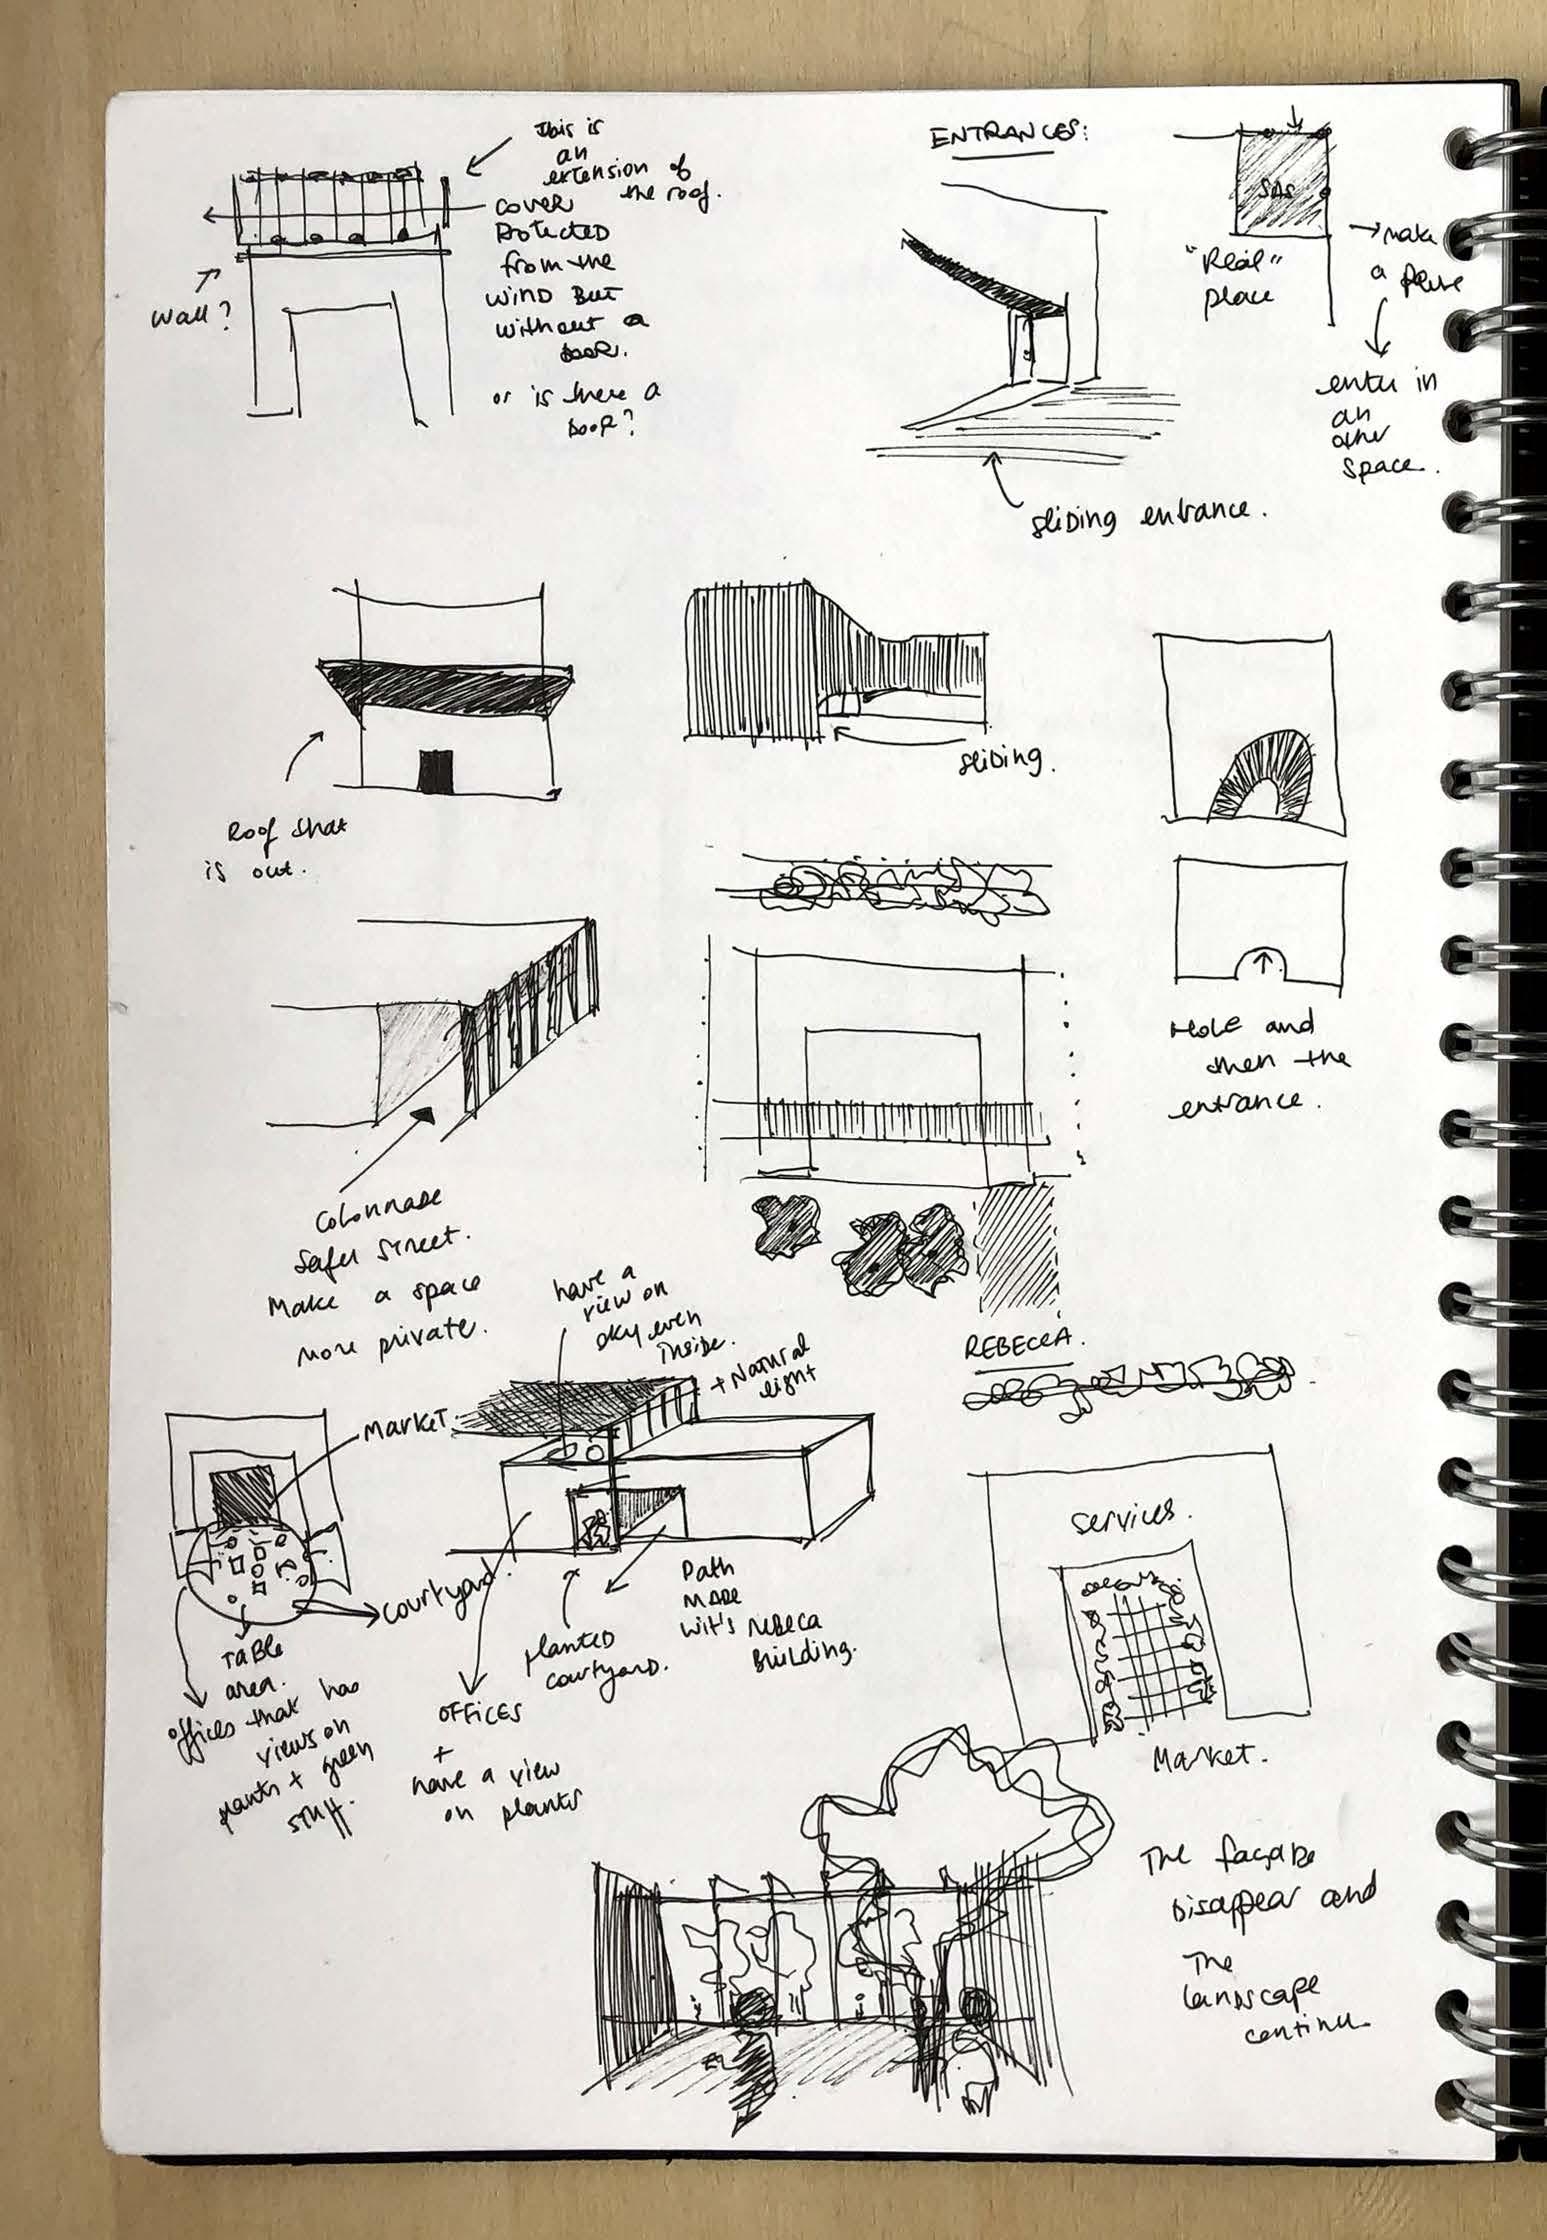 This is
an
extension of
the roof.
cover
Protected
from the
wind But
without a
Door.
or is there a
Door?
wall?
ENTRANCES:
SAS
"Real"
place
make
a pause
enter in
an
other
space.
sliding entrance.
Roof that
is out.
sliding.
Hole and
then the
entrance.
Colonnade
Safer street.
Make a space
more private.
have a
view on
sky even
inside.
+ Natural
light
REBECCA.
Market
courtyard.
Table
area.
offices that has
views on
plants + green
stuff.
OFFICES
+
have a view
on plants
planted
courtyard.
Path
made
wit's Rebeca
Building.
Services.
Market.
The façade
Disappear and
The
landscape
continu